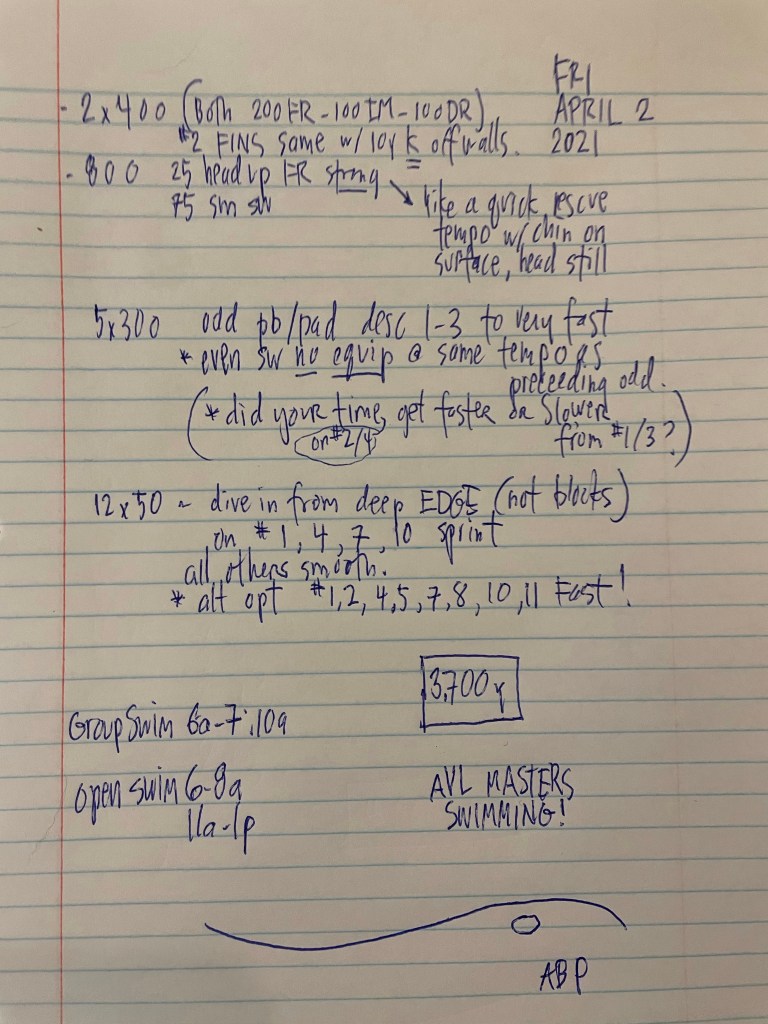 FRI
APRIL 2
2021
- 2x400 (Both 200 FR-100 IM-100 DR)
#2 FINS same w/ 10y K off walls.
- 800 25 head up FR strong
75 sm sw
like a quick rescue
tempo w/ chin on
surface, head still
5x300 odd pb/pad desc 1-3 to very fast
* even sw no equip @ same tempo as
preceeding odd.
(* did your time get faster or slower
on #2/4
from #1/3?)
12x50 ~ dive in from deep EDGE (not blocks)
on #1, 4, 7, 10 sprint
all others smooth.
* alt opt #1,2, 4,5, 7,8, 10,11 Fast!
3,700y
Group Swim 6a-7:10a
open swim 6-8a
11a-1p
AVL MASTERS
SWIMMING!
ABP